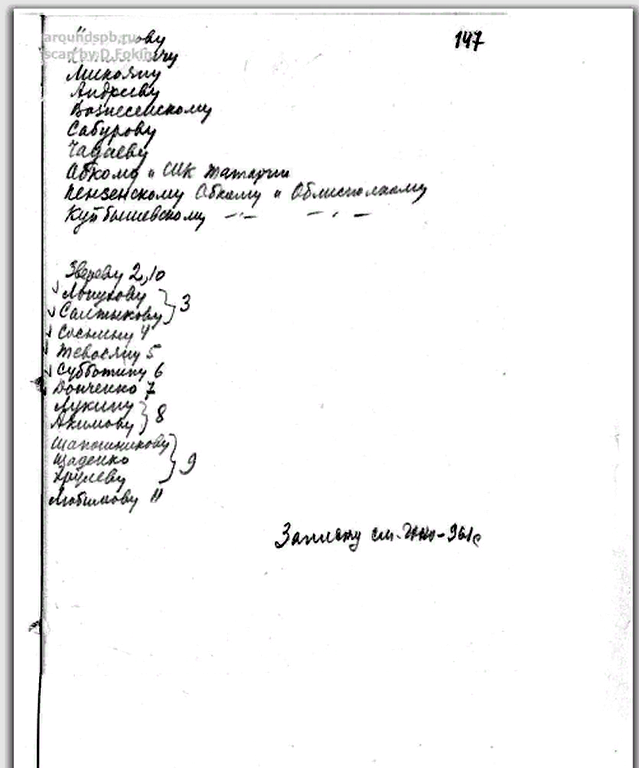 147
aroundspb.ru
scan by D.Fokin
Микояну
Андрееву
Вознесенскому
Сабурову
Чадаеву
Обкому и СНК Татарии
Пензенскому Обкому и Облисполкому
Куйбышевскому -"- -"-
Звереву 2,10
Лопухову
Салтыкову } 3
Соснину 4
Тевосяну 5
Субботину 6
Донченко 7
Лукину
Акимову } 8
Шапошникову
Щаденко } 9
Хрулеву
Любимову 11
Записку см.